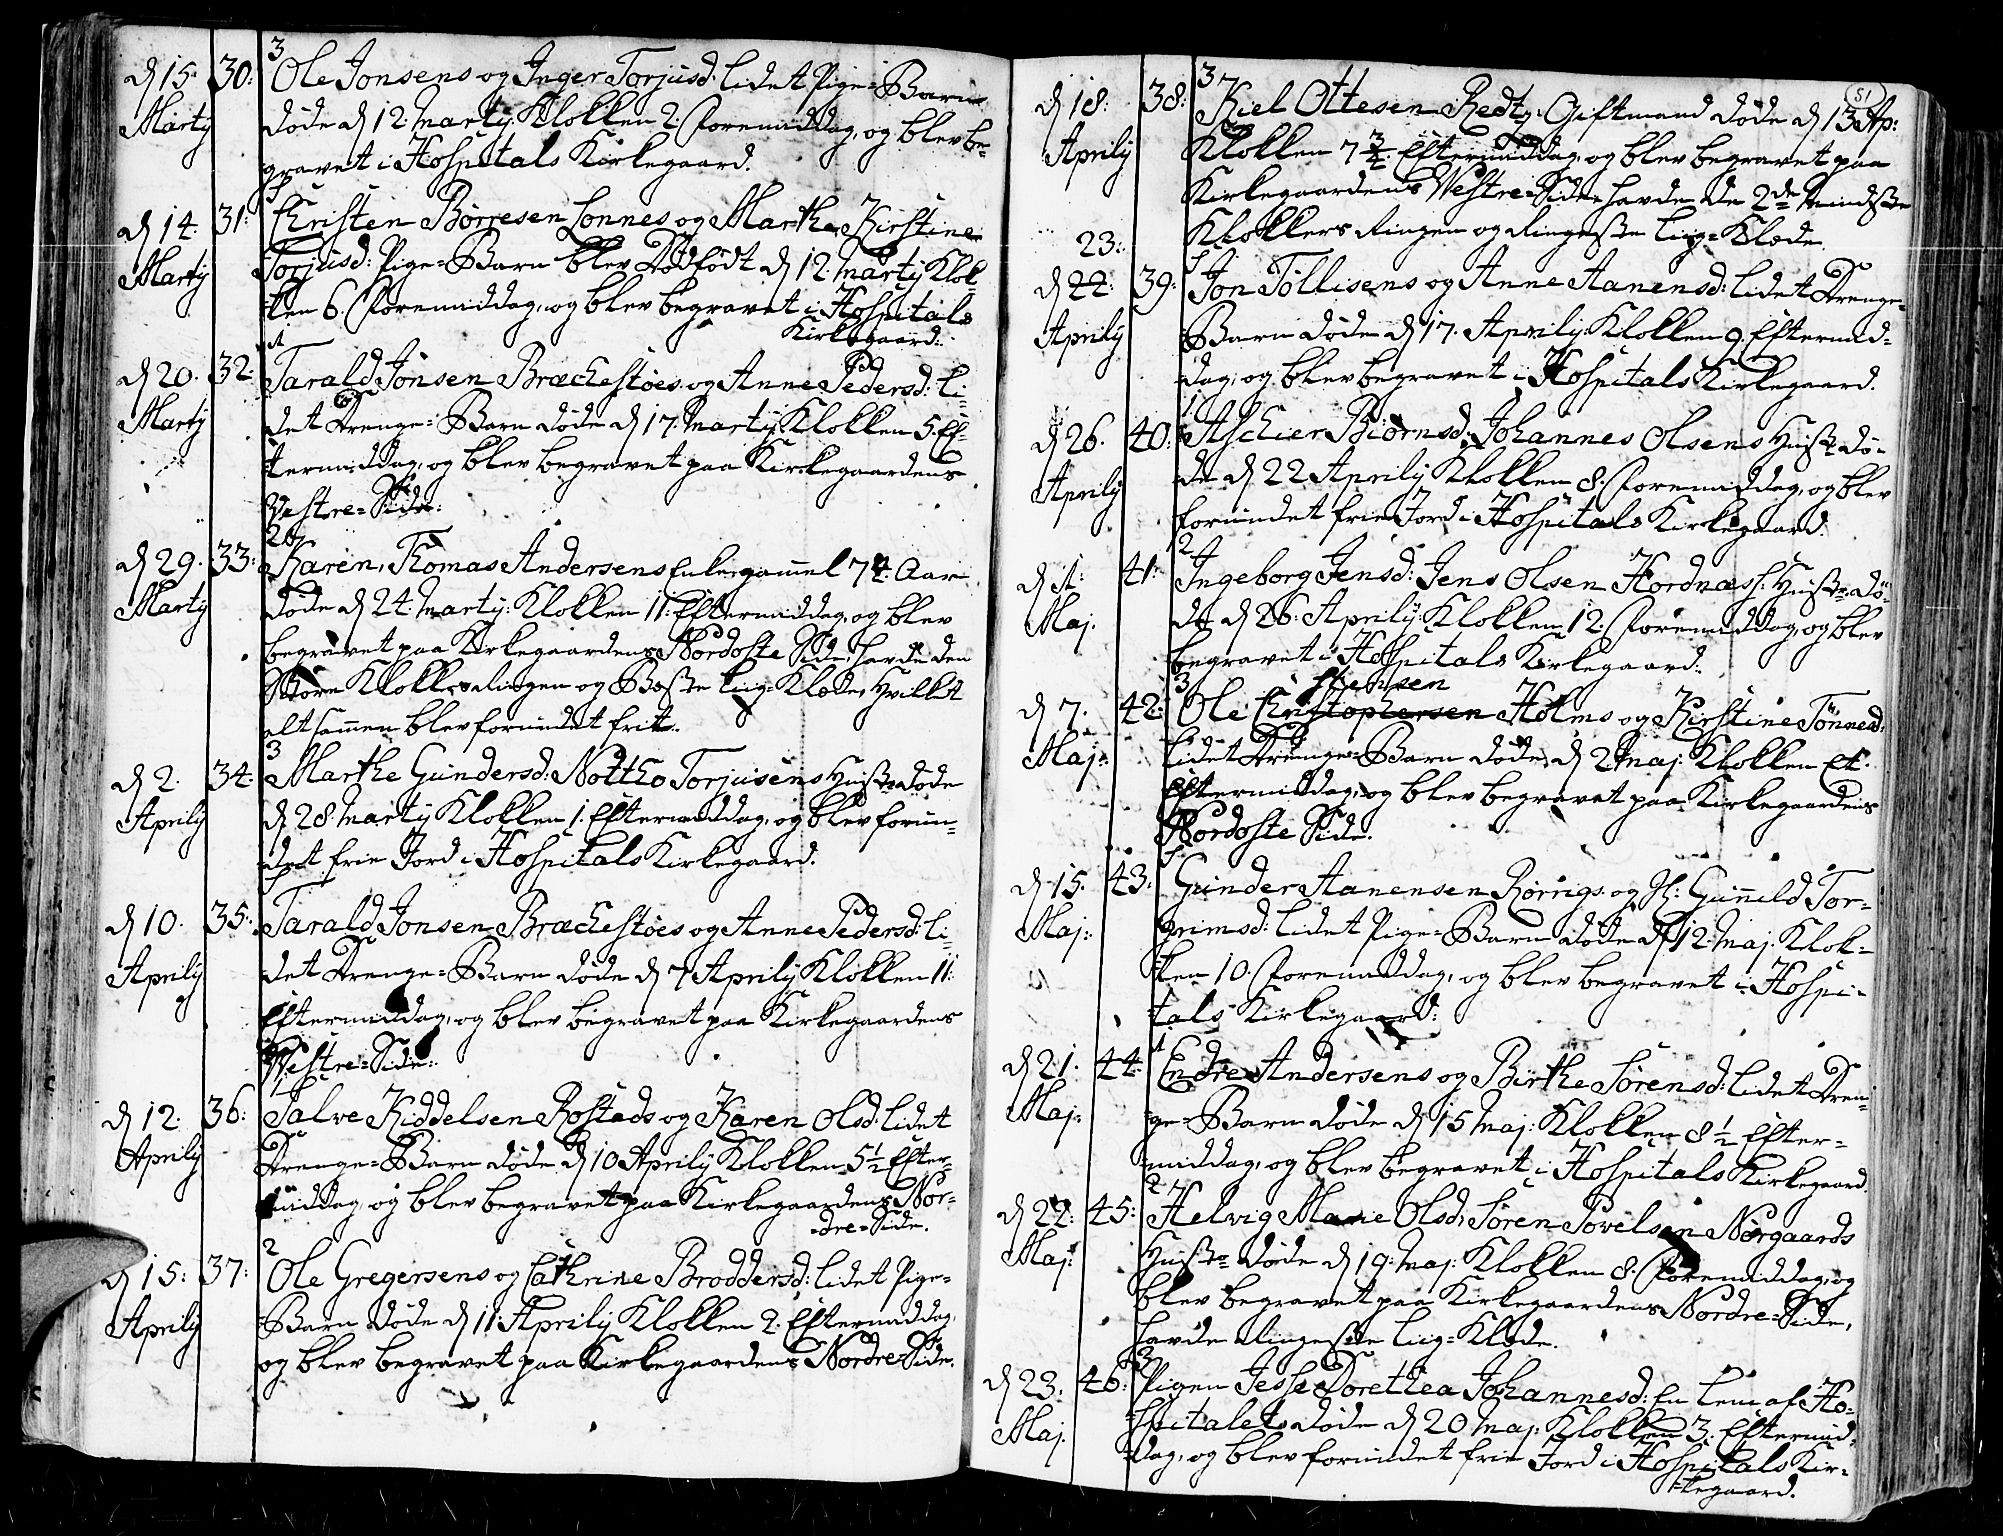 3
d 15. 30: Ole Jonsens og Inger Torjusd: lidet Pige-Barn
Marty døde d 12. Marty. Klokken 2. Formiddag, og blev be-
gravet i Hospitals Kirkegaard.
d 14. 31: Christen Børresen Lonnes og Marthe Kirstine
Marty Torjusd: Pige-Barn blev dødfødt d 12. Marty Klok-
ken 6. Formiddag, og blev begravet i Hospitals
Kirkegaard.
1
d 20. 32: Tarald Jonsen Bræckestøes og Anne Pedersd: li-
Marty det Drenge-Barn døde d 17. Marty Klokken 5. Ef-
termiddag, og blev begravet paa Kirkegaardens
Vestre-Side.
2
d 29. 33: Karen, Thomas Andersens Enke gamel 74. Aar
Marty døde d 24. Marty: Klokken 11. Eftermiddag, og blev
begravet paa Kirkegaardens Nordoste Side, havde den
Store Klokkes Ringen og Beste Liig-Klæde, hvilket
alt sammen blev forundet frit.
3
d 2. 34: Marthe Gundersd: Nottho Torjusens Hustr døde
Aprily d 28. Marty Klokken 1. Eftermiddag, og blev forun-
det frie Jord i Hospitals Kirkegaard.
d 10. 35: Tarald Jonsen Bræckestøes og Anne Pedersd: li-
Aprily det Drenge-Barn døde d 7 Aprily Klokken 11.
Eftermiddag, og blev begravet paa Kirkegaardens
Vestre-Side.
1
d 12. 36: Salve Kiddelsen Rostads og Karen Olsd: lidet
Aprily Drenge-Barn døde d 10 Aprily Klokken 5½ Efter-
middag og blev begravet paa Kirkegaardens Nor-
dre-Side.
2
d 15: 37: Ole Gregersens og Cathrine Broddersd: lidet Pige-
Aprily Barn døde d 11 Aprily Klokken 2. Eftermiddag,
og blev begravet paa Kirkegaardens Nordre-Side.
51
3
d 18: 38: Kiel Ottesen Redty. Giftmand døde d 13 Ap:
Aprily Klokken 7¾. Eftermiddag, og blev begravet paa
Kirkegaardens Vestre-Side, havde de 2de Mindste
Klokkers Ringen og Ringeste Liig-Klæde.
23.
d 22: 39: Jon Tollisens og Anne Aanensd: lidet Drenge-
Aprily Barn døde d 17. Aprily Klokken 9. Eftermid-
dag, og blev begravet i Hospitals Kirkegaard.
1
d 26. 40: Aschier Biørnsd, Johannes Olsens Hustr dø-
Aprily de d 22 Aprily Klokken 8. Formiddag, og blev
forundet frie Jord i Hospitals Kirkegaard.
2
d 1: 41: Ingeborg Jensd: Jens Olsen Hordnæss: Hustr dø-
Maj. de d 26. Aprily. Klokken 12. Formiddag, og blev
begravet i Hospitals Kirkegaard.
3
d 7. 42: Ole Christophersen Holms og Kirstine Tønnesd:
Maj: lidet Drenge-Barn døde d 2 Maj. Klokken Et.
Eftermiddag, og blev begravet paa Kirkegaardens
Nordoste Side.
d 15. 43: Gunder Aanensen Rørrigs og Gunnild Tor-
Maj: grimsd: lidet Pige-Barn døde d 12. Maj. Klok-
ken 10. Formiddag, og blev begravet i Hospi-
tals Kirkegaard:
1
d 21: 44: Endre Andersens og Birthe Sørensd: lidet Dren-
Maj: ge-Barn døde d 15 Maj: Klokken 8½ Efter-
middag, og blev begravet i Hospitals Kirkegaard.
2
d 22: 45: Helvig Marie Olsd, Søren Povelsen Nørgaards
Maj: Hustr døde d 19. Maj: Klokken 8. Formiddag, og
blev begravet paa Kirkegaardens Nordre-Side,
havde Ringeste Liig-Klæde.
3
d 23: 46: Pigen Jesse Dorethea Johannesd: En Lem af Ho-
Maj. spitalet døde d 20 Maj: Klokken 3. Eftermid-
dag, og blev forundet frie Jord i Hospitals Kir-
kegaard.